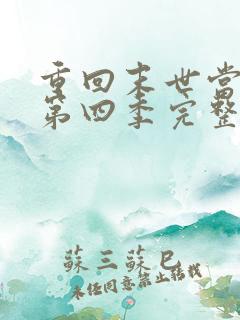 重回末世当
第四季完整
蘇三蘇巳
未经同意禁止转载